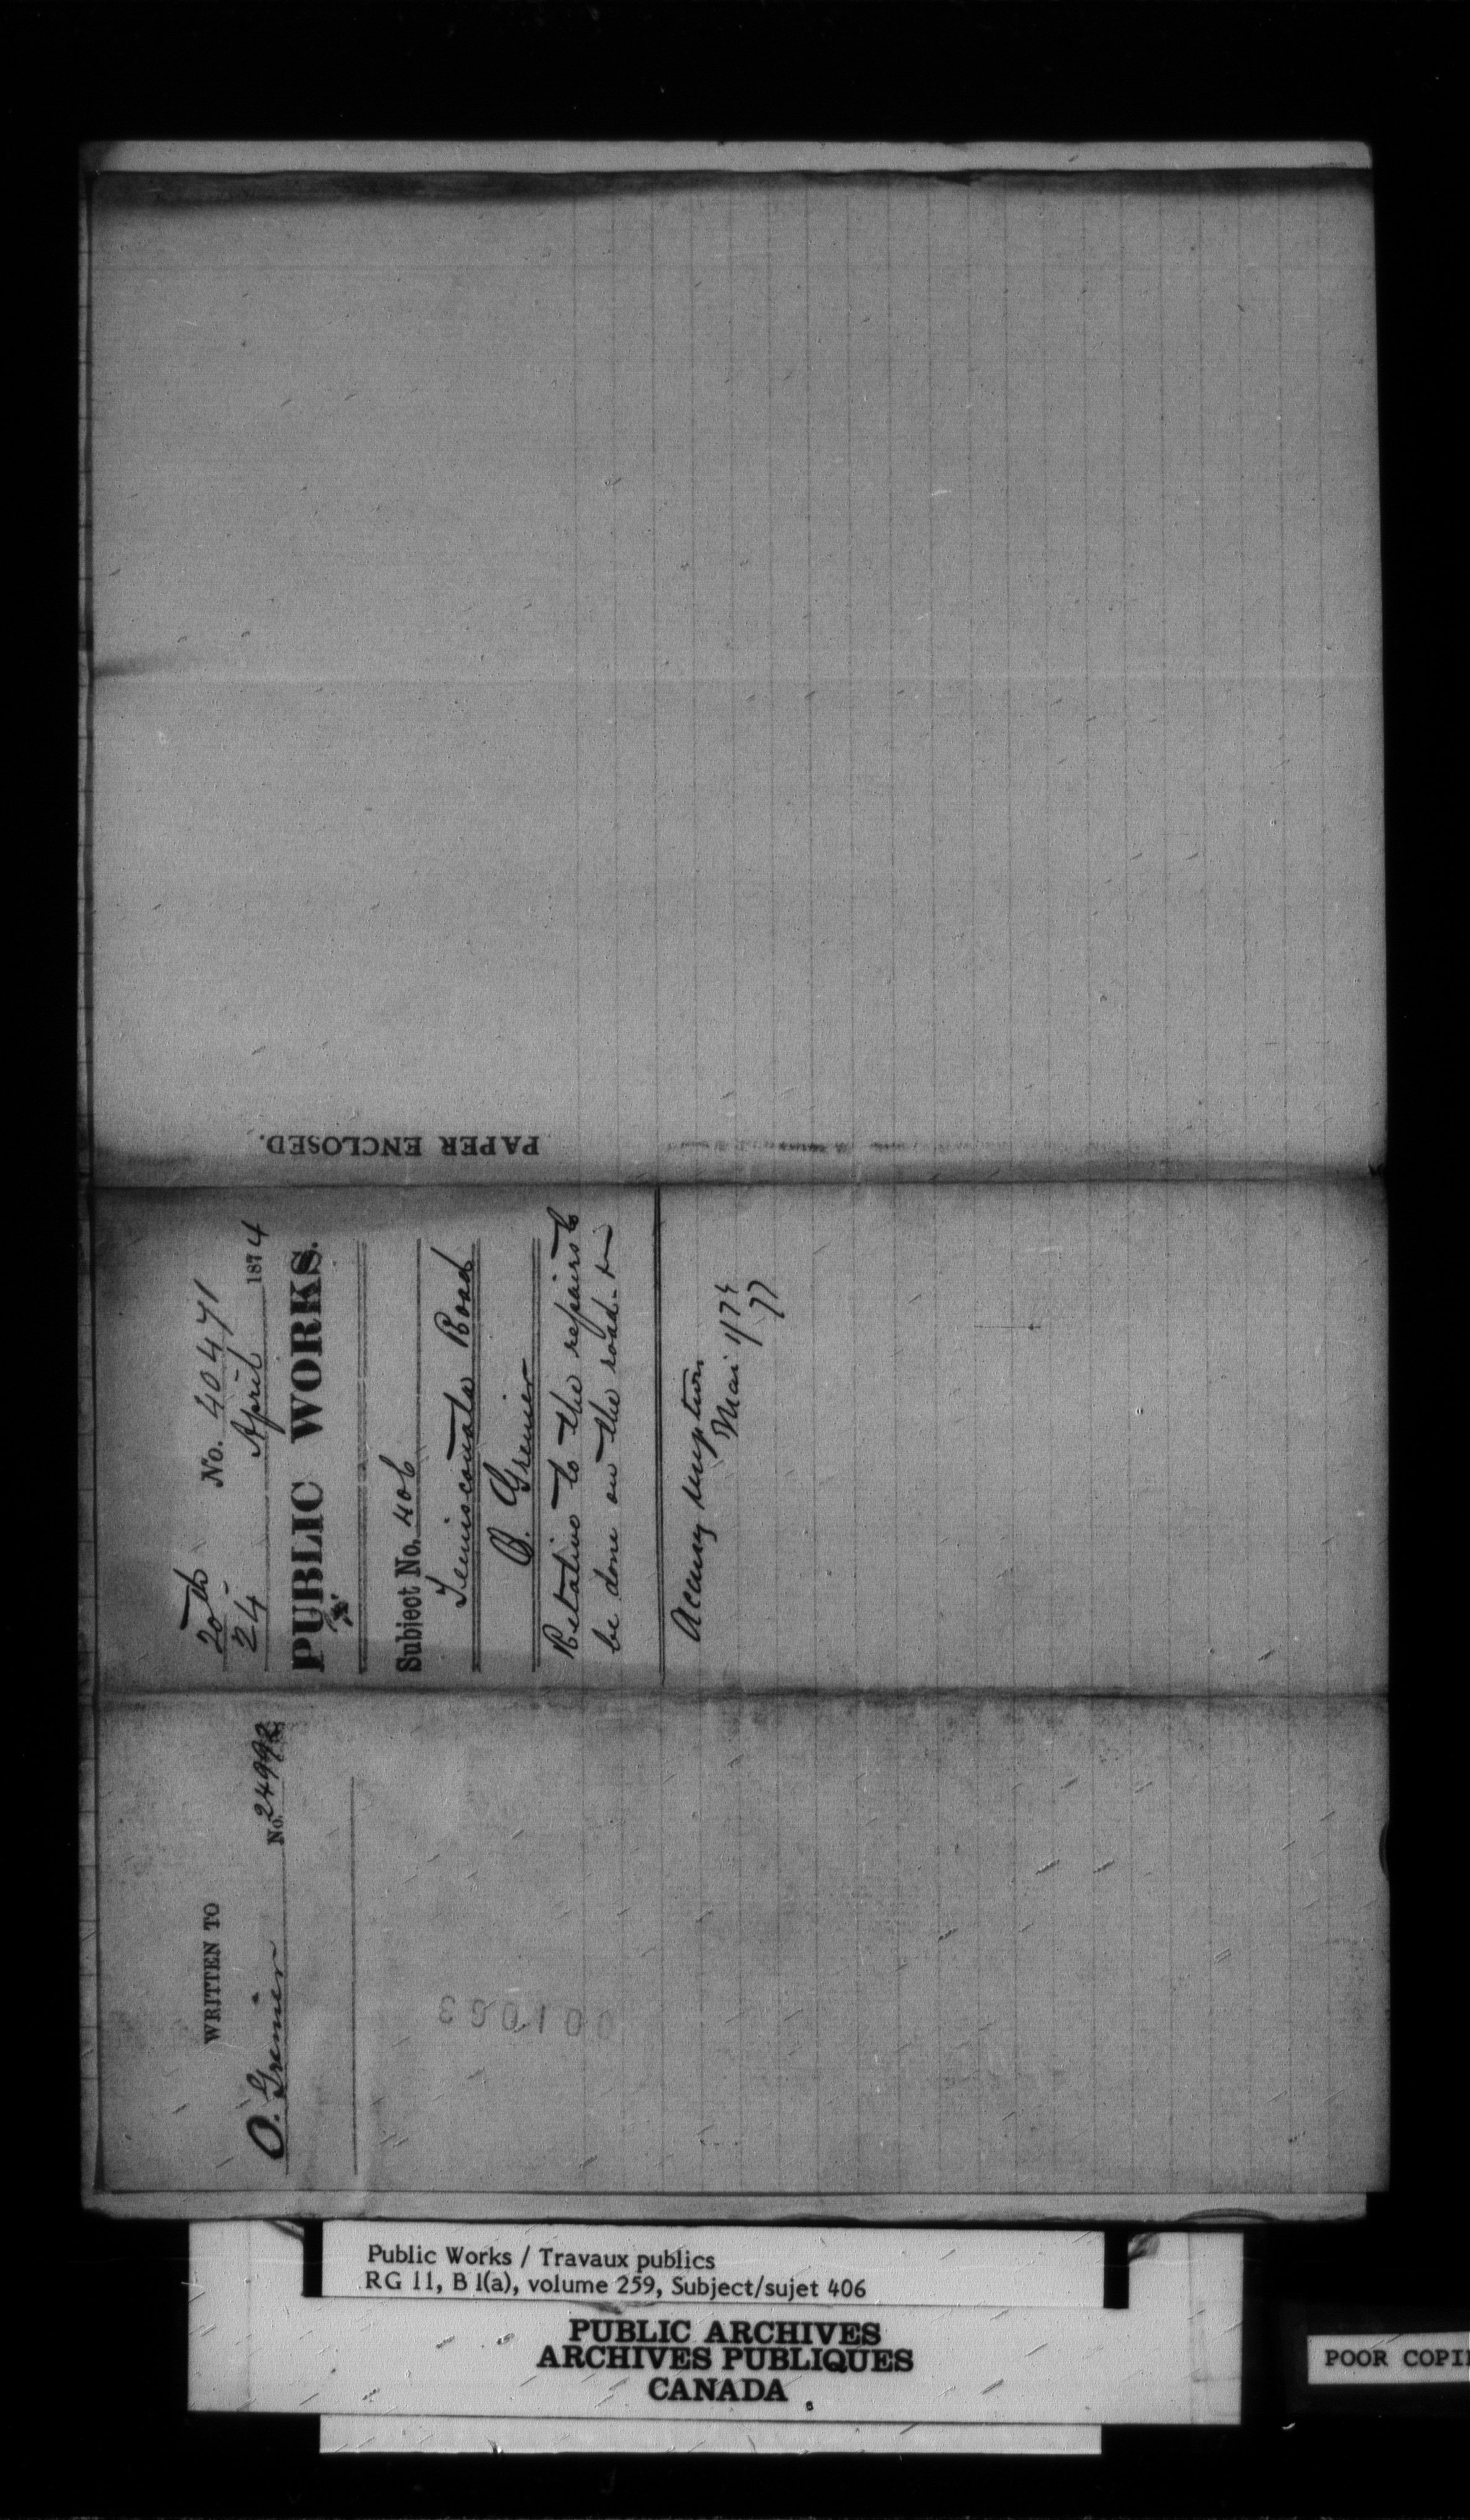 PAPER ENCLOSED.
20th No. 40471
24 April 1874
PUBLIC WORKS.
Subject No. 406
Temiscouata Road
O. Grenier
Relative to the repairs to
be done on the road.
Mai 1/74
WRITTEN TO
O. Grenier No. 24992
Public Works / Travaux publics
RG 11, B 1(a), volume 259, Subject/sujet 406
PUBLIC ARCHIVES
ARCHIVES PUBLIQUES
CANADA
POOR COPI